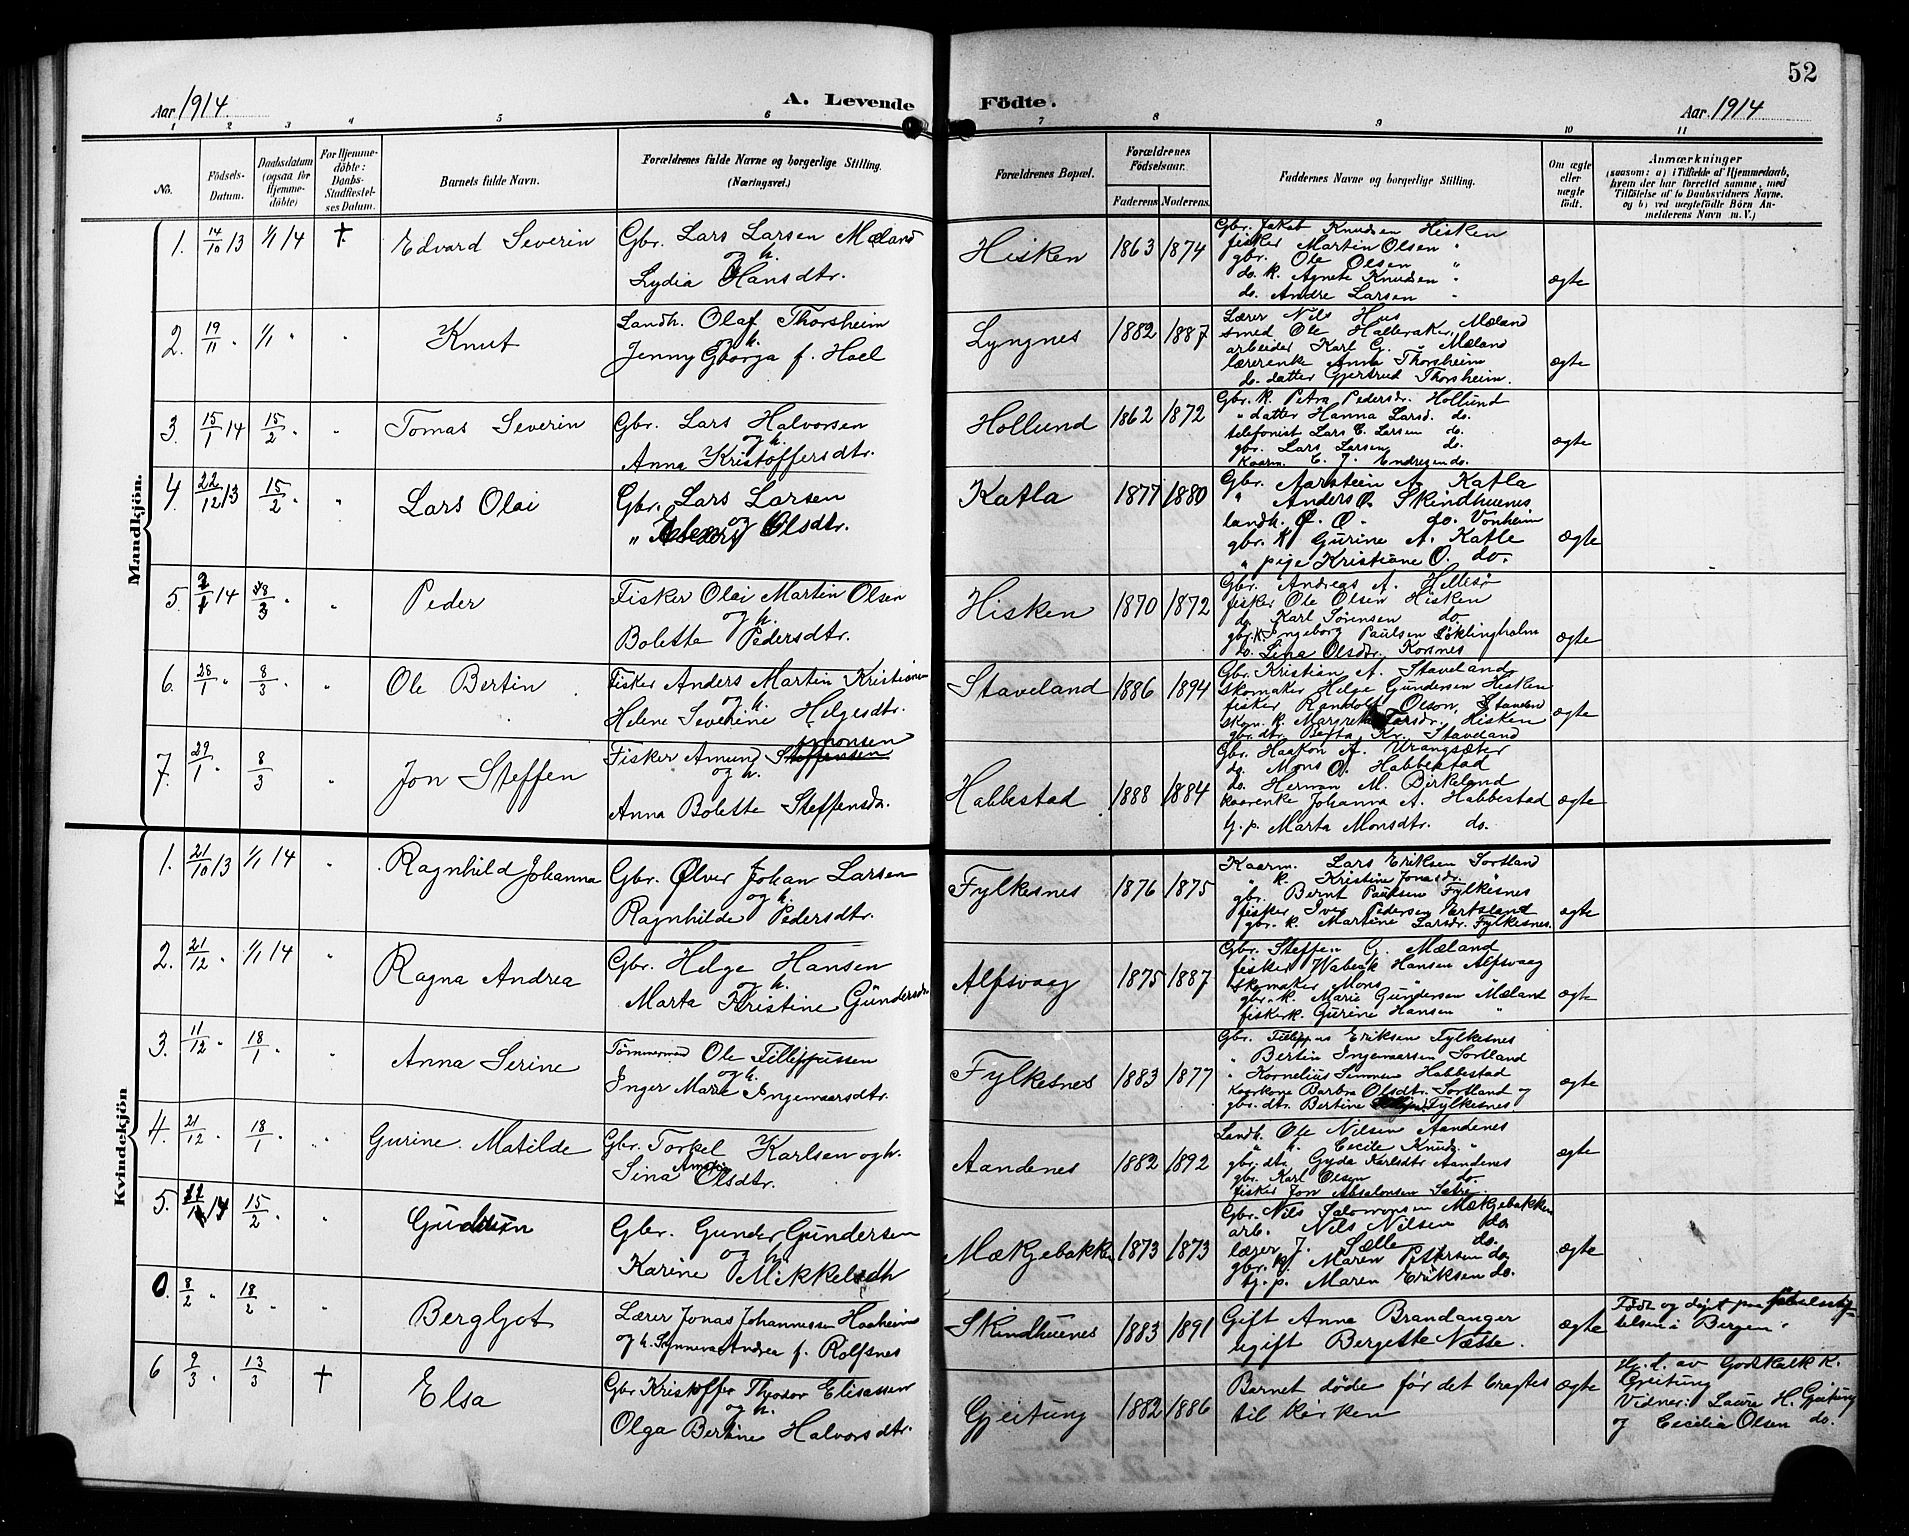 52
Aar 1914.
A. Levende Födte.
Aar 1914
1 2 3 4 5 6 7 8 9 10 11
No.
Födsels-
Datum.
Daabsdatum
(ogsaa for
Hjemme-
döbte)
For Hjemme-
döbte:
Daabs-
Stadfæstel-
ses Datum.
Barnets fulde Navn.
Forældrenes fulde Navne og borgerlige Stilling.
(Næringsvei.)
Forældrenes Bopæl.
Forældrenes
Födselsaar.
Faderens
Moderens.
Faddernes Navne og borgerlige Stilling.
Om ægte
eller
uægte
födt.
Anmærkninger
(saasom: a) i Tilfælde af Hjemmedaab,
hvem der har forrettet samme, med
Tilföielse af to Daabsvidners Navne,
og b) ved uægtefödte Börn An-
melderens Navn m. V.)
Mandkjön.
1. 14/10 13 1/1 14 †. Edvard Severin
Gbr. Lars Larsen Mæland
og h.
Lydia Hansdtr.
Hisken 1863 1874
Gbr. Jakob Knudsen Hisken
fisker Martin Olsen "
gbr. Ole Olsen "
do. k. Agnete Knudsen "
do. Andre Larsen "
ægte
2. 19/11 " 1/1 " " Knut
Landh. Olaf Thorsheim
og h.
Jenny Georga f. Hoel
Lyngnes 1882 1887
Lærer Nils Hus
smed Ole Halleraker, Mæland
arbeider Karl G. " Mæland
lærerenke Anna Thorsheim
do. datter Gjertrud Thorsheim.
ægte
3. 15/1 14 15/2 " " Tomas Severin
Gbr. Lars Halvorsen
og h.
Anna Kristoffersdtr.
Hollund 1862 1872
Gbr. k. Petra Pedersdr. Hollund
" datter Hanna Larsd. do.
telefonist Lars E. Larsen do.
gbr. Lars Larsen do.
Kaarm. E. J. Endresen do.
ægte
4. 22/12 13 15/2 " " Lars Olai
Gbr. Lars Larsen
og
" Olsdtr.
Katla 1877 1880
Gbr. Aarstein A. Katla
" Anders O. Skindhuenes
landh. O. O. " do. Vonheim
gbr. k. Gurine A. Katle
" pige Kristiane O. do.
ægte
5. 14 8/3 " " Peder
Fisker Olai Martin Olsen
og h.
Bolette Pedersdtr.
Hisken 1870 1872
Gbr. Andreas A. Hellesø
fisker Ole Olsen Hisken
do. Karl Sørensen do.
gbr. k. Ingeborg Paulsen Løklingholm
do. Lina Olsdtr. Kornes
ægte
6. 28/1 " 8/3 " " Ole Bertin
Fisker Anders Martin Kristiansen
og h.
Helene Severine Helgesdtr.
Staveland 1886 1894
Gbr. Kristian A. Staveland
skomaker Helge Gundersen Hisken
fisker Randolf Olson,
skom. k. Margreta Larsdr. Hisken
gbr. dtr. Berta Kr. Staveland
ægte
7. 29/1 " 8/3 " Jon Steffen
Simonsen
Fisker Amund Steffensen
og h.
Anna Bolette Steffensdr.
Habbestad 1888 1884
Gbr. Haakon A. Urangsæter
do. Mons O. Habbestad
do. Herman M. Birkeland
kaarenke Johanna A. Habbestad
g. p. Marta Monsdtr. do.
ægte
Kvindekjön
1. 21/10 13 1/1 14 " Ragnhild Johanna
Gbr. Ølver Johan Larsen
og h.
Ragnhilde Pedersdtr.
Fylkesnes 1876 1875
Kaarm. Lars Eriksen Sortland
" k. Kristine Jonasdr. "
gbr. Bernt Paulsen Fylkesnes
fisker Iver Pedersen
gbr. k. Martine Larsdr. Fylkesnes.
ægte
2. 21/12 " 1/1 14 " Ragna Andrea
Gbr. Helge Hansen
og h.
Marta Kristine Gundersdr.
Alfsvaag 1875 1887
Gbr. Steffen G. Mæland
fisker Wabeak Hansen Alfsvaag
skomaker Mons "
gbr. k. Marie Gundersen Mæland
fiskerk. Gurine Hansen "
ægte
3. 11/12 " 18/1 " " Anna Serine
Tømmermand Ole Fillippussen
og h.
Inger Marie Ingemarsdtr.
Fylkesnes 1883 1877
Gbr. Fillippus Eriksen Fylkesnes
" Bertin Ingemarsen Sortland
" Kornelius Simonsen Habbestad
kaarkone Barbra Olsdtr. Sortland og
gbr. dtr. Bertine Fylkesnes
ægte
4. 21/12 " 18/1 " " Gurine Matilde
Gbr. Torkel Karlsen og h.
Amalie
Sina Olsdtr.
Aandenes 1882 1892
Landh. Ole Nilsen Aandenes
" k. Cecile Knuds. "
gbr. dtr. Gyda Karlsdtr Aandenes
gbr. Karl Olsen do.
fisker Jon Absalonsen Sætre
ægte
5. 14 15/2 " " Gudrun
Gbr. Gunder Gundersen
og h.
Karine Mikkelsdtr
Mækjebakken 1873 1873
Gbr. Nils Salomonsen Mækjebakken
arb. Nils Nilsen do.
lærer J. Sælle do.
gbr. k. Maren Petersen do.
g. p. Maren Eriksen do.
ægte
0. 8/2 " 18/2 " " Bergljot
Lærer Jonas Johannessen Haaheim
og h. Synneva Andrea f. Rolfsnes
Skindhuenes 1883 1891
Gift Anna Brandanger
ugift Bergette Næsse.
ægte
Født og døpt paa fødselsstif-
telsen i Bergen.
6 9/3 " 13/3 † Elsa
Gbr. Kristoffer Theodor Eliassen
og h.
Olga Bertine Halvorsdtr.
Gjeitung 1882 1886
Barnet døde før det bragtes
til kirken
ægte
Hj. d. av Godskalk K.
Gjeitung
Vidner: Laura H. Gjeitung
og Cecilia Olsen do.